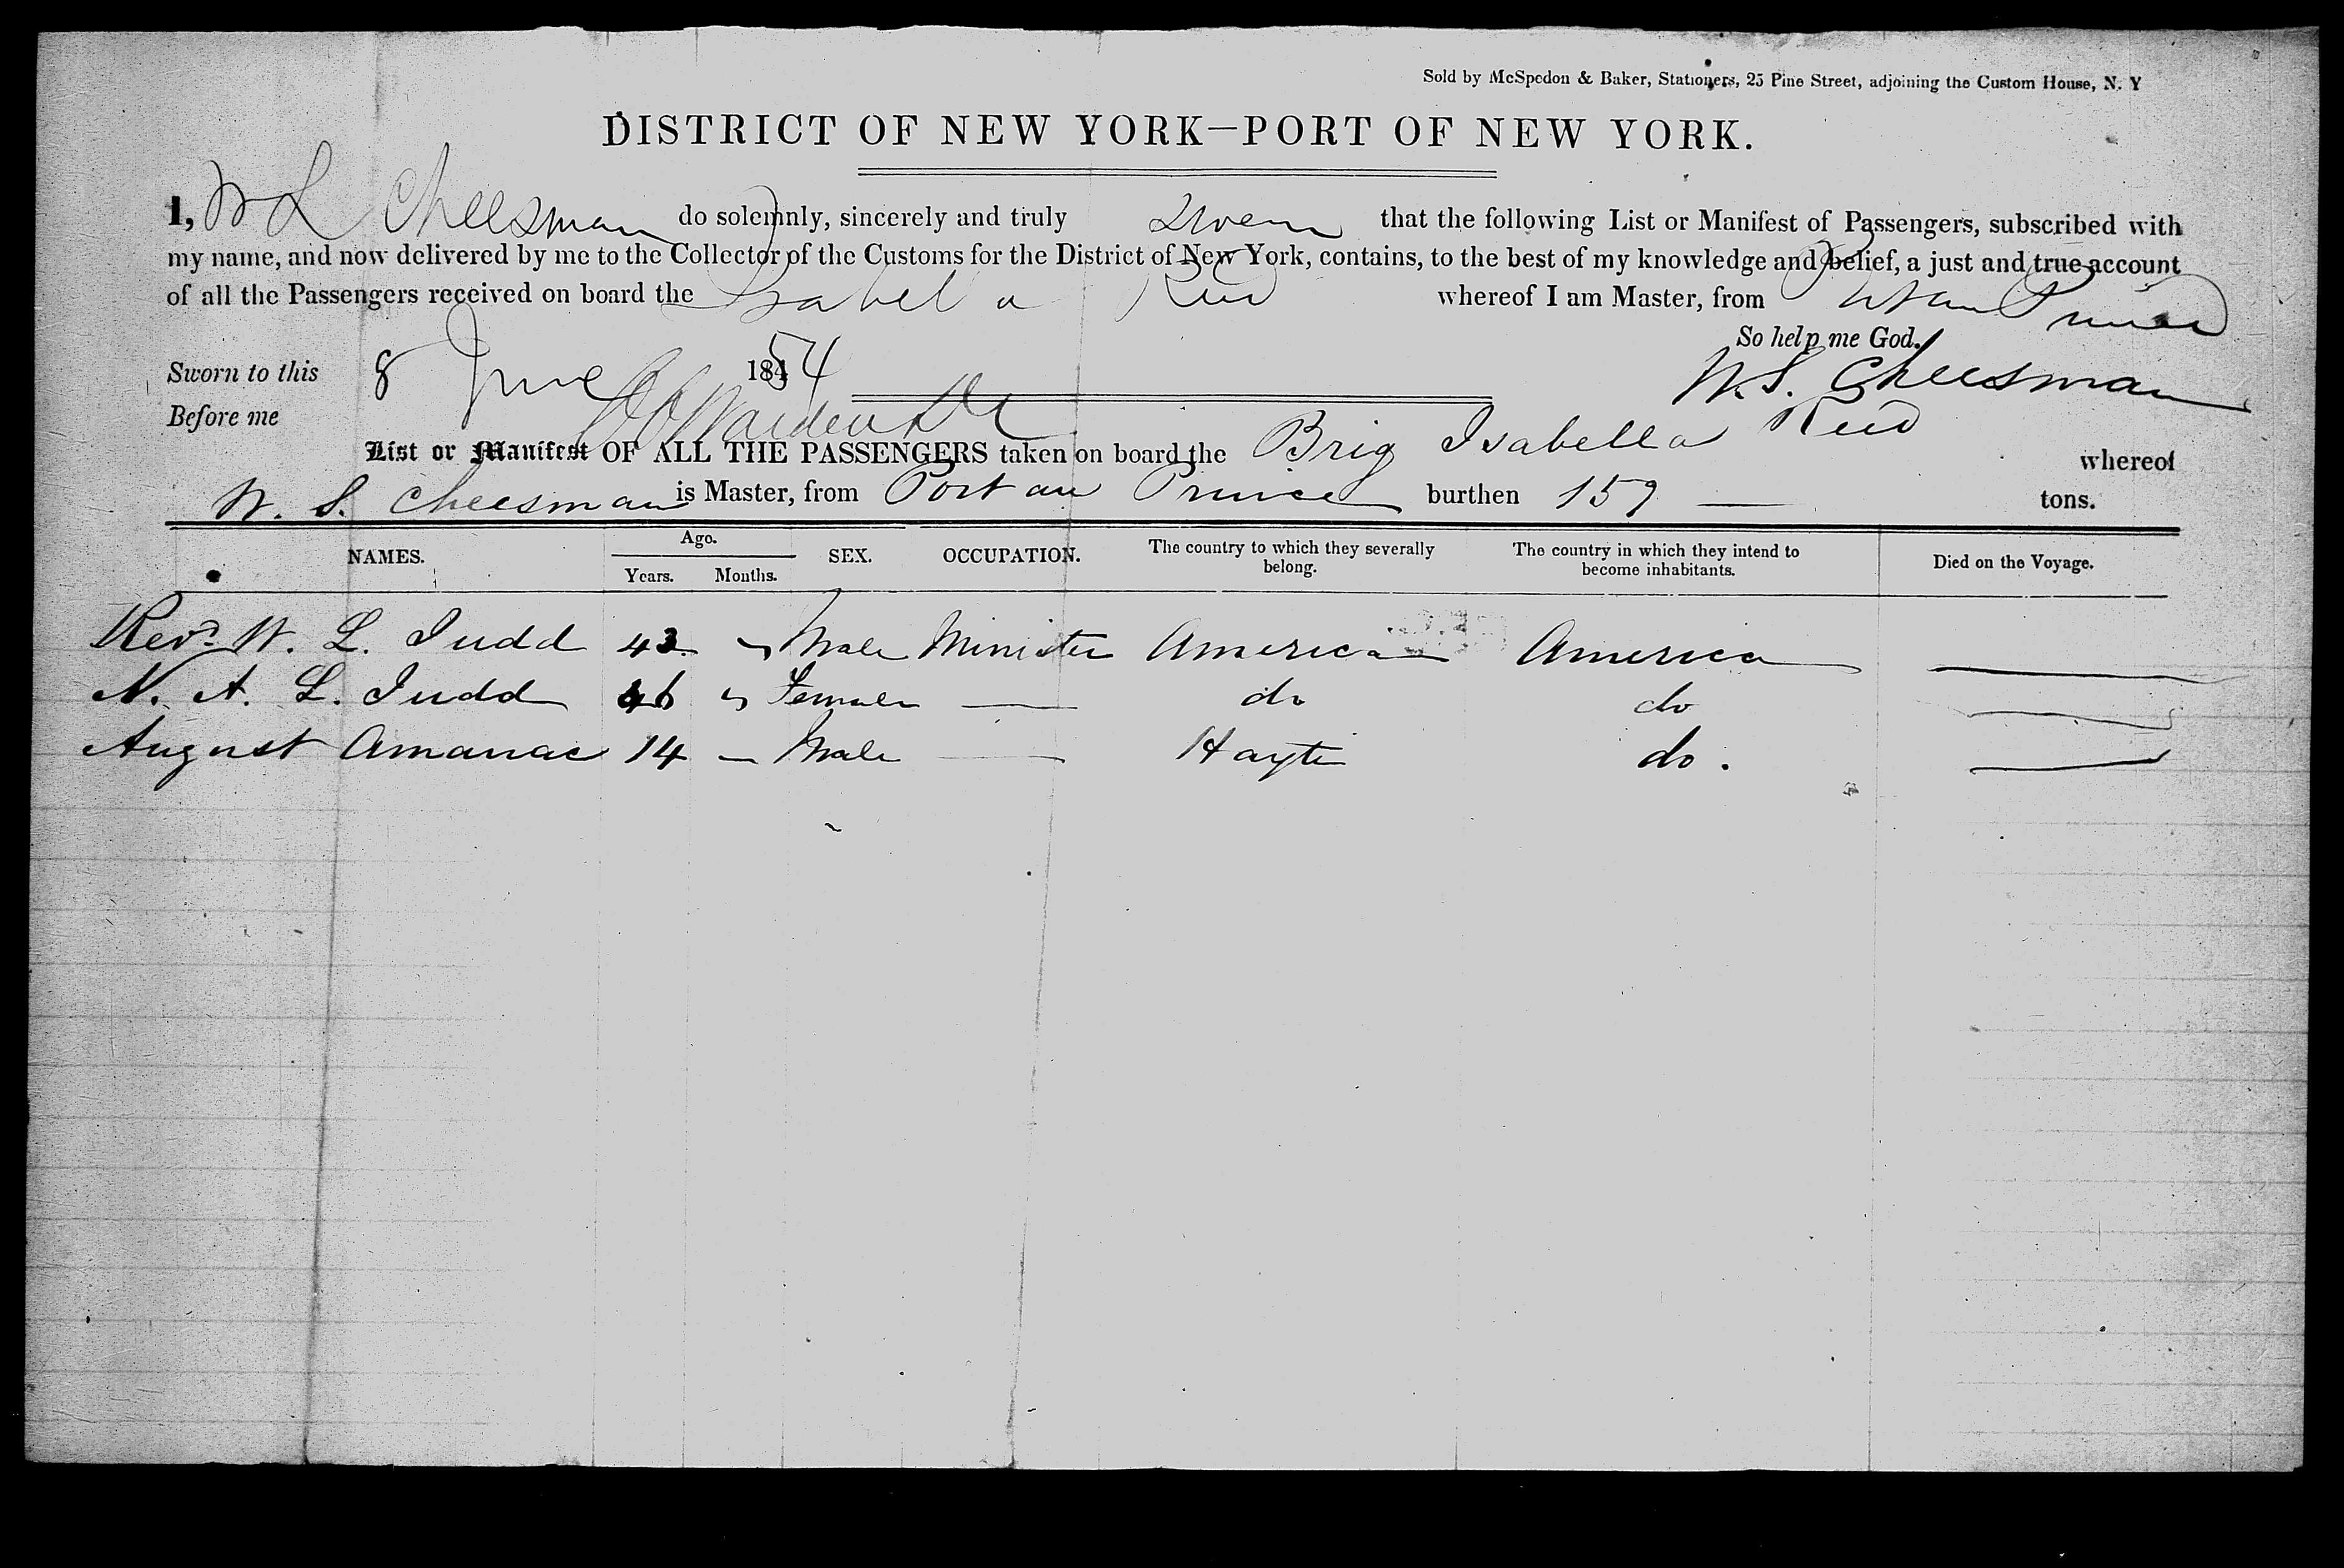 Sold by McSpedon & Baker, Stationers, 25 Pine Street, adjoining the Custom House, N. Y
DISTRICT OF NEW YORK—PORT OF NEW YORK.
I, W L Cheesman do solemnly, sincerely and truly swear that the following List or Manifest of Passengers, subscribed with
my name, and now delivered by me to the Collector of the Customs for the District of New York, contains, to the best of my knowledge and belief, a just and true account
of all the Passengers received on board the Isabel a Reid whereof I am Master, from Prince
So help me God.
Sworn to this 8 June 1854
W. S. Cheesman
Before me
List or Manifest OF ALL THE PASSENGERS taken on board the Brig Isabella Reid whereof
W. S. Cheesman is Master, from Port au Prince burthen 159 — tons.
NAMES. Age. Years. Months. SEX. OCCUPATION. The country to which they severally belong. The country in which they intend to become inhabitants. Died on the Voyage.
Revd. W. L. Judd 43 " Male Minister America America —
N. A. L. Judd 46 " Female — do do —
August Amanac 14 — Male — Hayti do. —